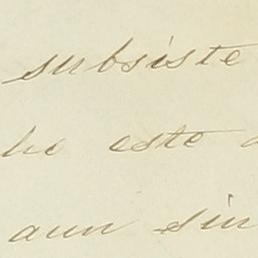 subsiste
este
aun sin